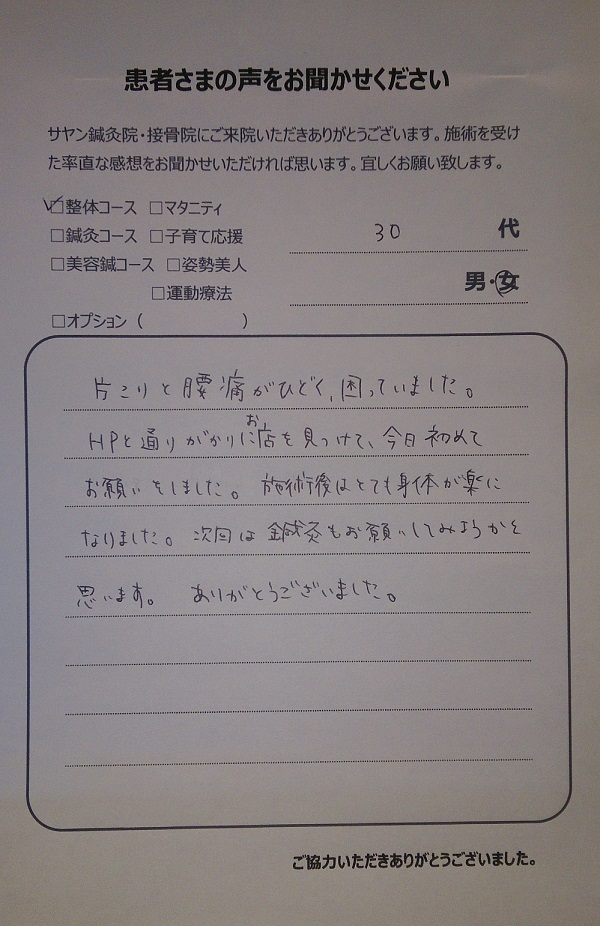 患者さまの声をお聞かせください
サヤン鍼灸院・接骨院にご来院いただきありがとうございます。施術を受け
た率直な感想をお聞かせいただければ思います。宜しくお願い致します。
□整体コース □マタニティ
□鍼灸コース □子育て応援
□美容鍼コース □姿勢美人
□運動療法
□オプション（ ）
30 代
男・女
片こりと腰痛がひどく、困っていました。
HPと通りがかりにお店を見つけて、今日初めて
お願いをしました。施術後はとても身体が楽に
なりました。次回は鍼灸もお願いしてみようかと
思います。 ありがとうございました。
ご協力いただきありがとうございました。